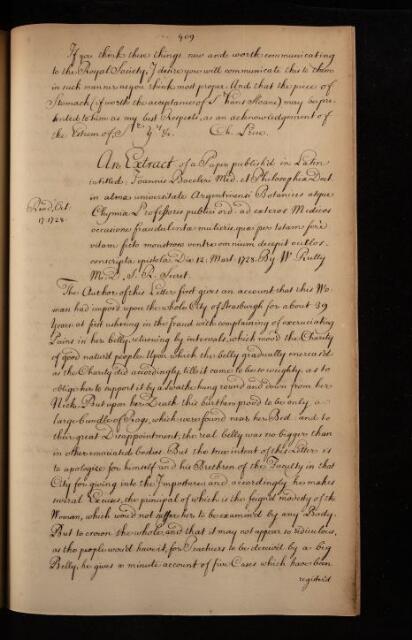 409
If you think these things new and worth communicating
to the Royal Society, I desire you will communicate this to them
in such manner as you think most proper. And that the piece of
Stomach (if worth the acceptance of Sr. Hans Sloane) may be pre-
sented to him as my best Respects, as an acknowledgement of
the Esteem of, Sr. yrs. &c. Ch.
An Extract of a Paper publish'd in Latin
intitled, Joannis Boecleri Med. et Philosophiæ Doct.
in alma universitate Argentinensi Botanices atque
Chymiæ Professoris publici ord. ad exteros Medicos
occasione fraudulentæ mulieris, quæ per totam ferè
vitam ficto monstroso ventre omnium decepit oculos,
conscripta epistola. Da. 12. Mart. 1728. By Wm. Rutty
M.D. S. R. Secret.
Read, Oct.
17. 1728.
The Author of this Letter first gives an account that this Wo-
man had impos'd upon the whole City of Strasburgh for about 39
Years, at first ushering in the fraud with complaining of excruciating
Pains in her belly, returning by intervals, which mov'd the Charity
of good natur'd people. Upon which the belly gradually encreas'd
as the Charity did accordingly, till it came to be so weighty, as to
oblige her to support it by a swathe hung round and down from her
Neck. But upon her Death this burthen prov'd to be only a
large bundle of Rags, which were found near her Bed, and to
their great Disappointment, the real belly was no bigger than
in other emaciated bodies. But the true intent of this Letter is
to apologize for himself and his Brethren of the Faculty in that
City for giving into the Imposture; and accordingly he makes
several Excuses, the principal of which is the feign'd modesty of the
Woman, which would not suffer her to be examin'd by any Body.
But to crown the whole, and that it may not appear so ridiculous,
as the people would have it, for Teachers to be deceiv'd by a big
Belly, he gives a minute account of five Cases which have been
register'd